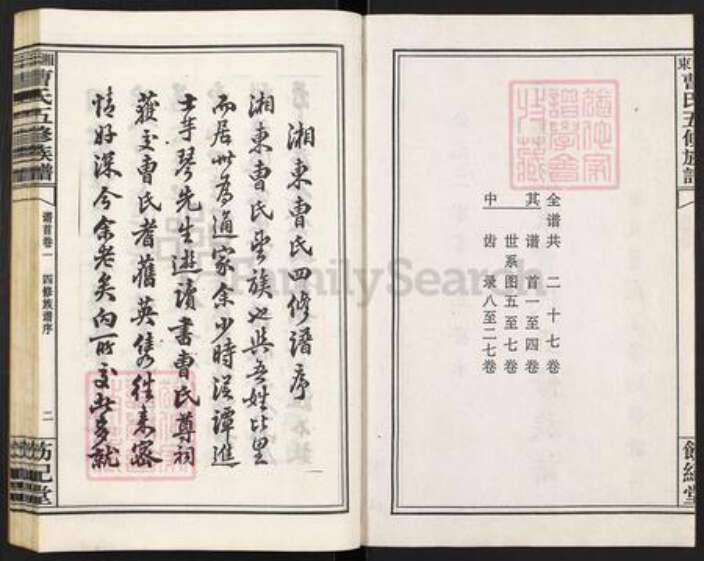 東曹氏五修族譜
全谱共二十七卷
其谱首一至四卷
世系图五至七卷
中齿录八至二七卷
湘東曹氏四修譜序
湘東曹氏望族也與吾姓比里
而居世為通家余少時從譚進
士芋琴先生遊讀書曹氏尊祠
獲交曹氏耆舊英俊往來密
情好深今余老矣向所交此多就
湘
曹氏五修族譜
谱首卷一 四修族谱序
二
FamilySearch